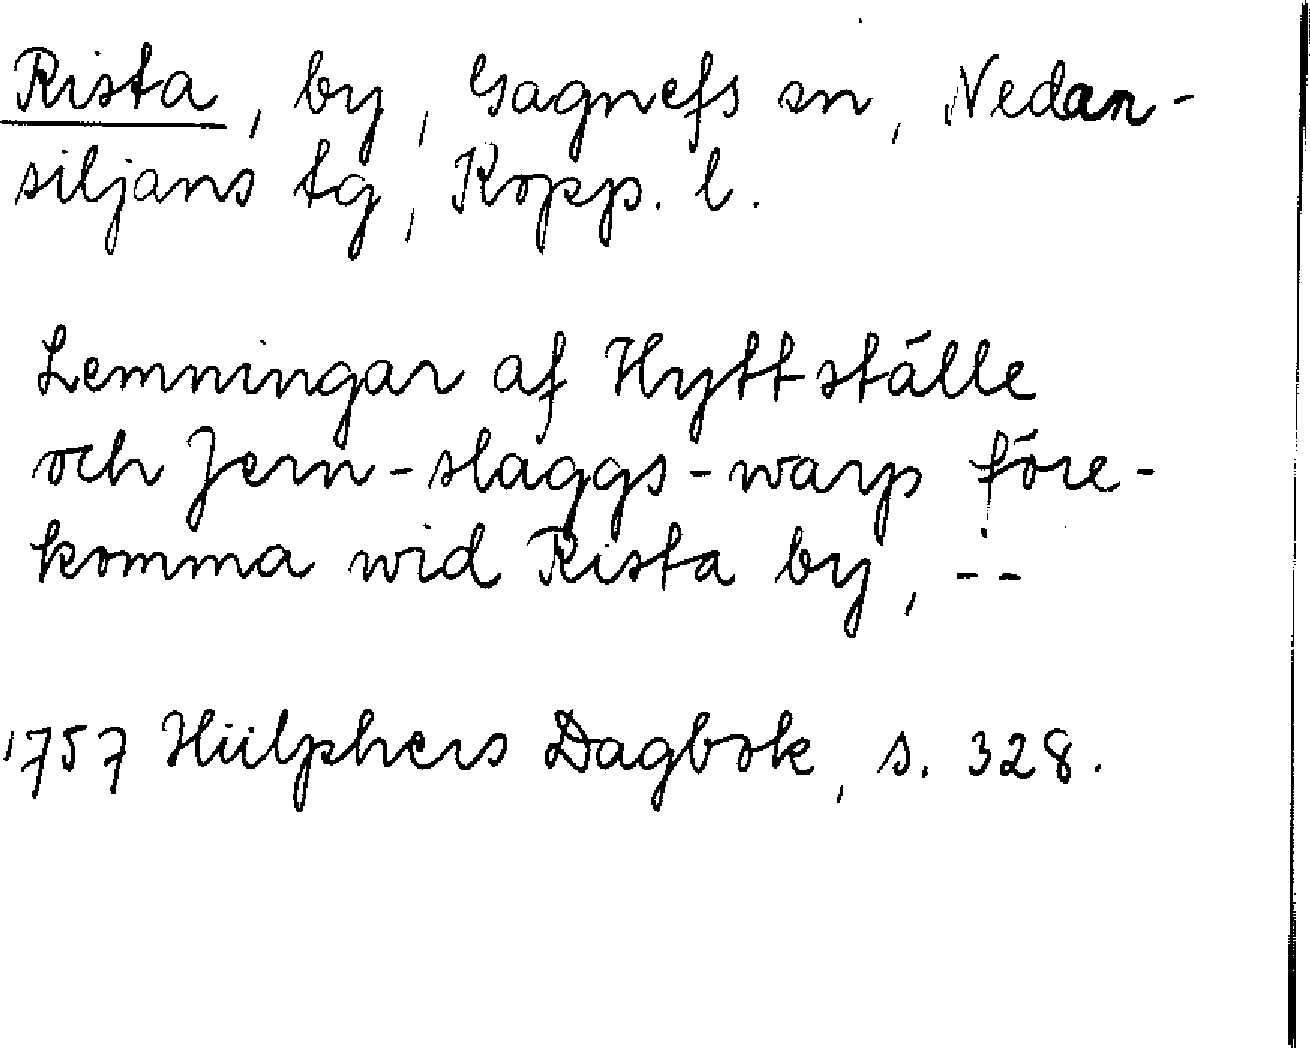 Rista, by, Gagnefs sn, Nedan-
siljans tg, Kopp. l.
Lemningar af Hyttställe
och Jern-slaggs-warp före-
komma wid Rista by, --
1757 Hülphers Dagbok, s. 328.